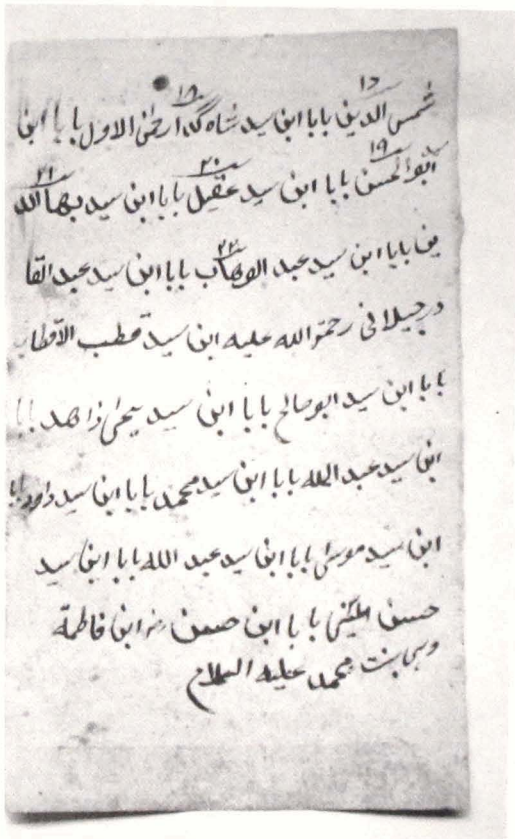 ۱۵ ۱۸
شمس الدین بابا ابن سید شاه گدا رحمن الاول بابا ابن
۱۹ ۲۰ ۲۱
سید ابو الحسن بابا ابن سید عقیل بابا ابن سید بها الد
۲۲
ین بابا ابن سید عبد الوهاب بابا ابن سید عبد القا
در جیلانی رحمة الله علیه ابن سید قطب الاقطاب
بابا ابن سید ابو صالح بابا ابن سید یحیی زاهد بابا
ابن سید عبد الله بابا ابن سید محمد بابا ابن سید داود بابا
ابن سید موسی بابا ابن سید عبد الله بابا ابن سید
حسن بابا ابن حسن ابن فاطمة
بنت محمد علیه السلام